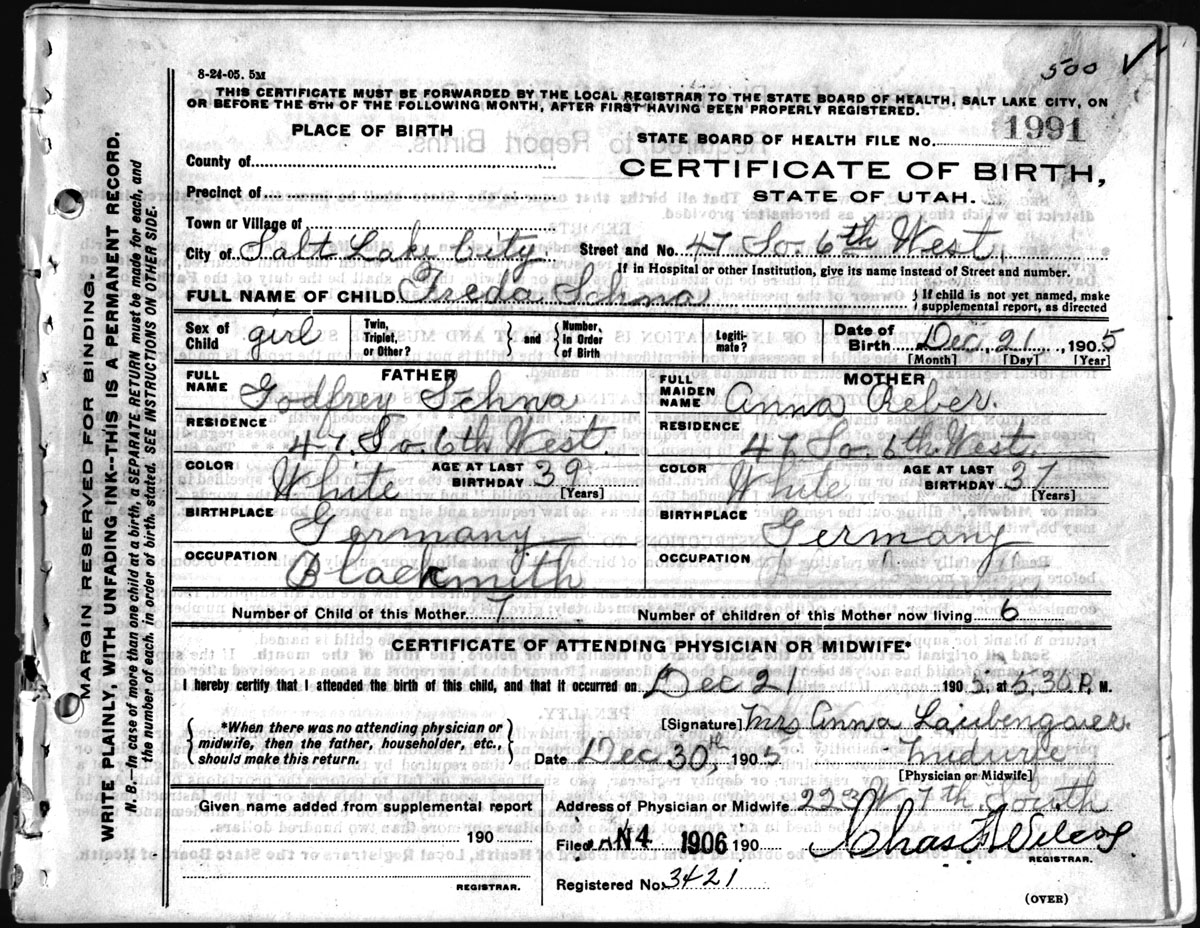 500 ✓
8-24-05. 5M
THIS CERTIFICATE MUST BE FORWARDED BY THE LOCAL REGISTRAR TO THE STATE BOARD OF HEALTH, SALT LAKE CITY, ON
OR BEFORE THE 5TH OF THE FOLLOWING MONTH, AFTER FIRST HAVING BEEN PROPERLY REGISTERED.
PLACE OF BIRTH
STATE BOARD OF HEALTH FILE NO. 1991
County of
CERTIFICATE OF BIRTH,
Precinct of
STATE OF UTAH.
Town or Village of
City of Salt Lake City Street and No. 47 So. 6th West.
If in Hospital or other Institution, give its name instead of Street and number.
FULL NAME OF CHILD Freda Schna } If child is not yet named, make
supplemental report, as directed
Sex of Child girl Twin, Triplet, or Other? } and { Number, in Order of Birth Legiti- mate? Date of Birth Dec. 21, 1905
[Month] [Day] [Year]
FATHER MOTHER
FULL NAME Godfrey Schna FULL MAIDEN NAME Anna Reber.
RESIDENCE 47. So. 6th West. RESIDENCE 47 So. 6th West.
COLOR White AGE AT LAST BIRTHDAY 39 [Years] COLOR White AGE AT LAST BIRTHDAY 37 [Years]
BIRTHPLACE Germany BIRTHPLACE Germany
OCCUPATION Blacksmith OCCUPATION
Number of Child of this Mother 7 Number of children of this Mother now living 6
CERTIFICATE OF ATTENDING PHYSICIAN OR MIDWIFE*
I hereby certify that I attended the birth of this child, and that it occurred on Dec 21 1905, at 5,30 P. M.
*When there was no attending physician or
midwife, then the father, householder, etc.,
should make this return.
[Signature] Mrs Anna Laubengaier.
Date Dec 30th, 1905 midwife
[Physician or Midwife]
Given name added from supplemental report
190
REGISTRAR.
Address of Physician or Midwife 223 W. 7th South
Filed JAN 4 1906 190 Chas F Wilcox
REGISTRAR.
Registered No. 3421
(OVER)
MARGIN RESERVED FOR BINDING.
WRITE PLAINLY, WITH UNFADING INK--THIS IS A PERMANENT RECORD.
N. B.--In case of more than one child at a birth, a SEPARATE RETURN must be made for each, and
the number of each, in order of birth, stated. SEE INSTRUCTIONS ON OTHER SIDE.